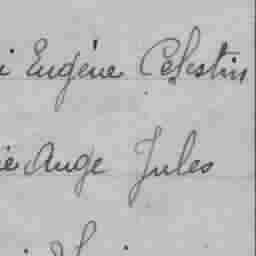 i Eugène Celestin
ie Ange Jules